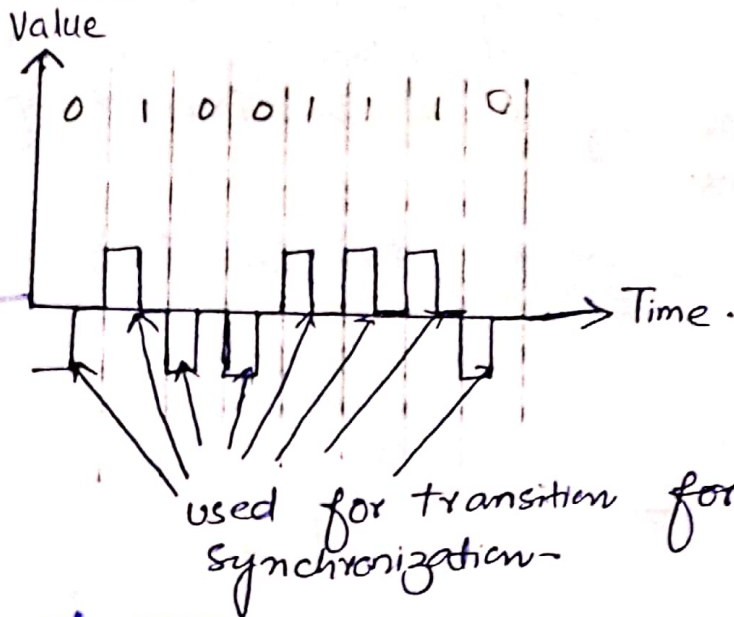 Value
0 1 0 0 1 1 1 0
Time.
used for transition for
synchronization-